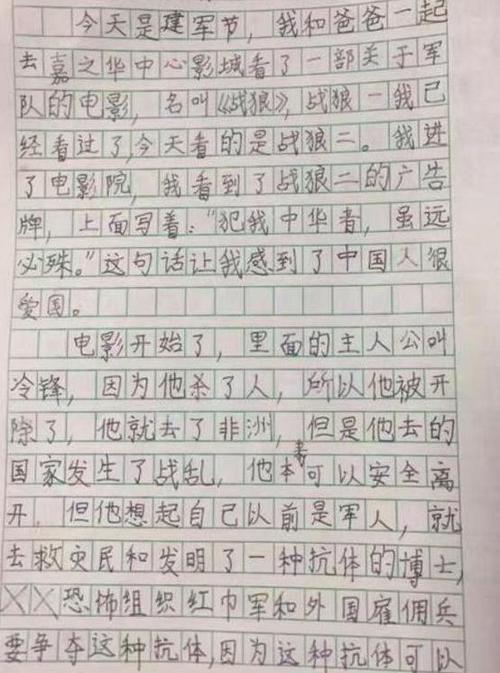 今天是建军节，我和爸爸一起
去嘉之华中心影城看了一部关于军
队的电影，名叫《战狼》，战狼一我已
经看过了，今天看的是战狼二。我进
了电影院，我看到了战狼二的广告
牌，上面写着：“犯我中华者，虽远
必殊。”这句话让我感到了中国人很
爱国。
电影开始了，里面的主人公叫
冷锋，因为他杀了人，所以他被开
除了，他就去了非洲，但是他去的
国家发生了战乱，他本来可以安全离
开，但他想起自己以前是军人，就
去救灾民和发明了一种抗体的博士，
恐怖组织红巾军和外国雇佣兵
要争夺这种抗体，因为这种抗体可以